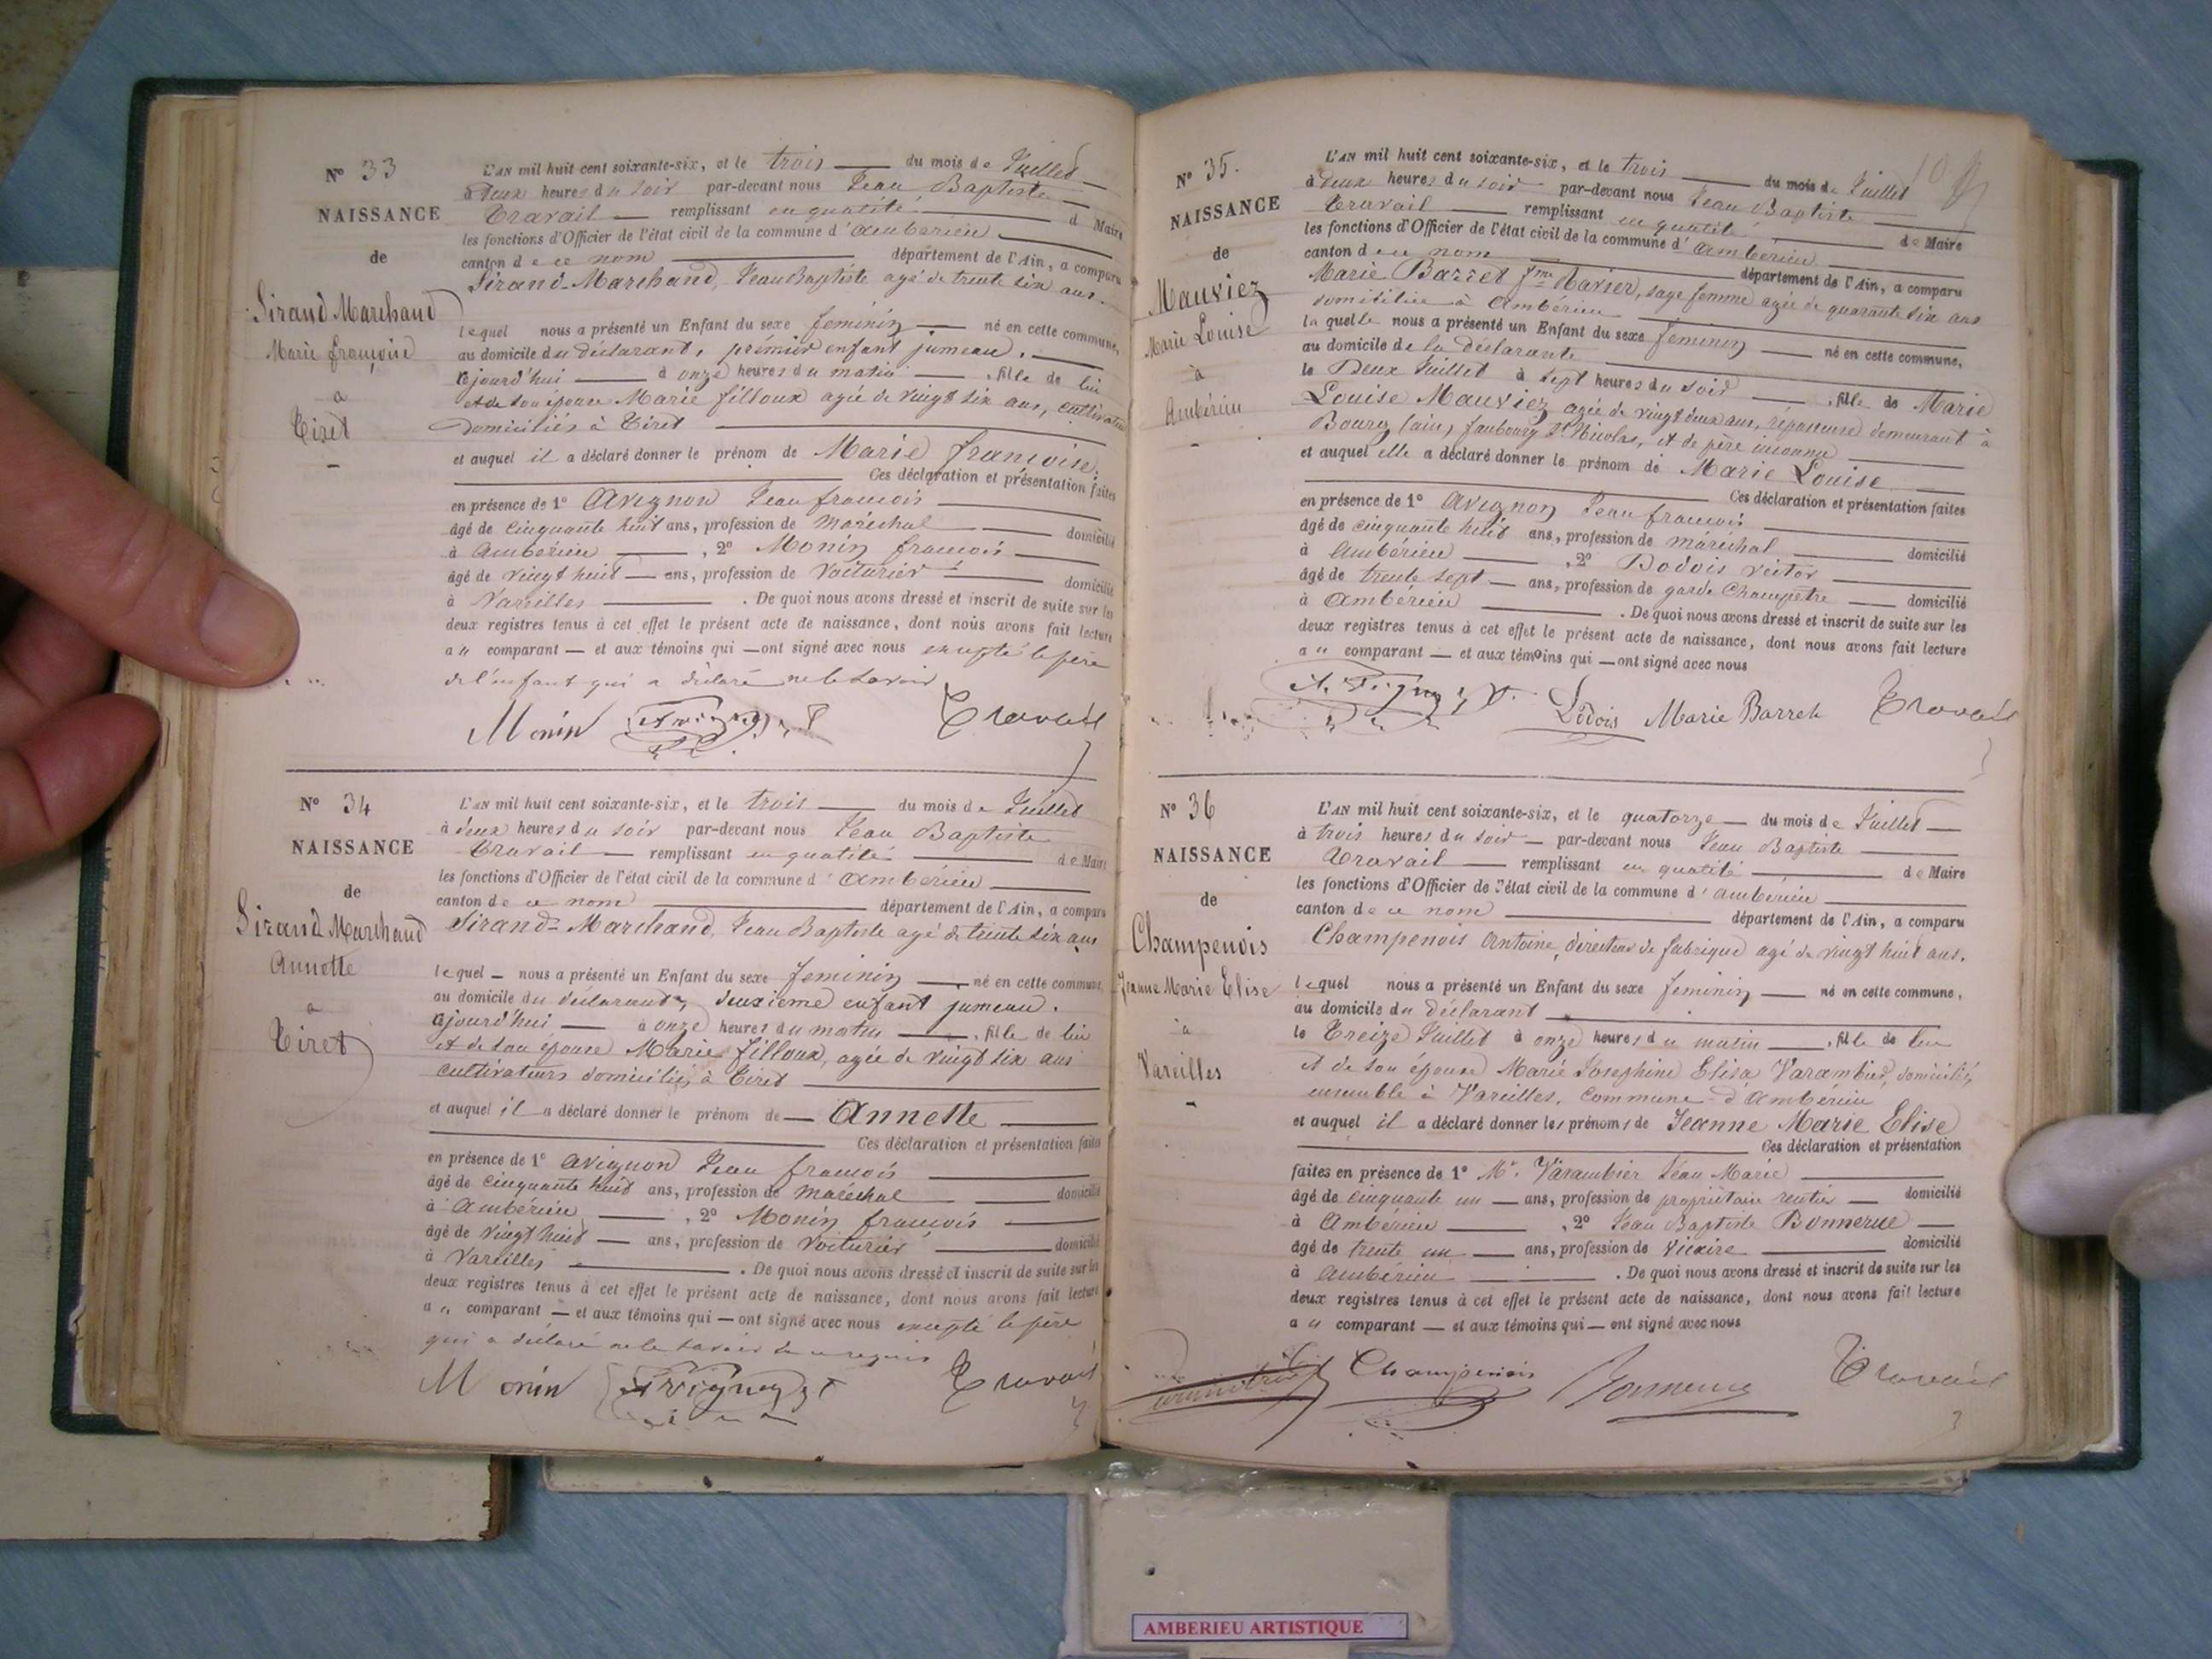 N° 33
NAISSANCE
de
Sirand Marchand
Marie françoise
à
Tiret
L'AN mil huit cent soixante-six, et le trois du mois de Juillet
à deux heures du soir par-devant nous Jean Baptiste
Travail remplissant en qualité de Maire
les fonctions d'Officier de l'état civil de la commune d'Ambérieu
canton de ce nom département de l'Ain, a comparu
Sirand-Marchand, Jean Baptiste agé de trente six ans.
lequel nous a présenté un Enfant du sexe feminin né en cette commune,
au domicile du déclarant, prémier enfant jumeau.
ajourd'hui à onze heures du matin, fille de lui
et de son épouse Marie filloux agée de vingt six ans, cultivateurs
domiciliés à Tiret
et auquel il a déclaré donner le prénom de Marie françoise.
Ces déclaration et présentation faites
en présence de 1° Avignon Jean françois
âgé de cinquante huit ans, profession de maréchal domicilié
à Ambérieu, 2° Monin françois
âgé de vingt huit ans, profession de voiturier domicilié
à Vareilles. De quoi nous avons dressé et inscrit de suite sur les
deux registres tenus à cet effet le présent acte de naissance, dont nous avons fait lecture
au comparant et aux témoins qui ont signé avec nous excepté le père
de l'enfant qui a déclaré ne le savoir
Monin Avignon Travail
N° 34
NAISSANCE
de
Sirand Marchand
Annette
à
Tiret
L'AN mil huit cent soixante-six, et le trois du mois de Juillet
à deux heures du soir par-devant nous Jean Baptiste
Travail remplissant en qualité de Maire
les fonctions d'Officier de l'état civil de la commune d'Ambérieu
canton de ce nom département de l'Ain, a comparu
Sirand-Marchand, Jean Baptiste agé de trente six ans
lequel nous a présenté un Enfant du sexe feminin né en cette commune,
au domicile du déclarant, deuxième enfant jumeau.
ajourd'hui à onze heures du matin, fille de lui
et de son épouse Marie filloux, agée de vingt six ans
cultivateurs domiciliés à Tiret
et auquel il a déclaré donner le prénom de Annette
Ces déclaration et présentation faites
en présence de 1° Avignon Jean françois
âgé de cinquante huit ans, profession de maréchal domicilié
à Ambérieu, 2° Monin françois
âgé de vingt huit ans, profession de voiturier domicilié
à Vareilles. De quoi nous avons dressé et inscrit de suite sur les
deux registres tenus à cet effet le présent acte de naissance, dont nous avons fait lecture
au comparant et aux témoins qui ont signé avec nous excepté le père
qui a déclaré ne le savoir de ce requis
Monin Avignon Travail
N° 35.
NAISSANCE
de
Mauviez
Marie Louise
à
Ambérieu
L'AN mil huit cent soixante-six, et le trois du mois de Juillet
à deux heures du soir par-devant nous Jean Baptiste
Travail remplissant en qualité de Maire
les fonctions d'Officier de l'état civil de la commune d'Ambérieu
canton de ce nom département de l'Ain, a comparu
Marie Barret fme Ravier, sage femme agée de quarante six ans
domiciliée à Ambérieu
laquelle nous a présenté un Enfant du sexe feminin né en cette commune,
au domicile de la déclarante
le Deux Juillet à sept heures du soir, fille de Marie
Louise Mauviez agée de vingt deux ans, répasseuse demeurant à
Bourg (ain) faubourg St Nicolas, et de père inconnu
et auquel elle a déclaré donner le prénom de Marie Louise
Ces déclaration et présentation faites
en présence de 1° Avignon Jean françois
âgé de cinquante huit ans, profession de maréchal domicilié
à Ambérieu, 2° Dodois victor
âgé de trente sept ans, profession de garde Champêtre domicilié
à Ambérieu. De quoi nous avons dressé et inscrit de suite sur les
deux registres tenus à cet effet le présent acte de naissance, dont nous avons fait lecture
au comparant et aux témoins qui ont signé avec nous
Dodois Marie Barret Travail
N° 36
NAISSANCE
de
Champenois
Jeanne Marie Elise
à
Vareilles
L'AN mil huit cent soixante-six, et le quatorze du mois de Juillet
à trois heures du soir par-devant nous Jean Baptiste
Travail remplissant en qualité de Maire
les fonctions d'Officier de l'état civil de la commune d'Ambérieu
canton de ce nom département de l'Ain, a comparu
Champenois Antoine, directeur de fabrique agé de vingt huit ans.
lequel nous a présenté un Enfant du sexe feminin né en cette commune,
au domicile du déclarant
le Treize Juillet à onze heures du matin, fille de lui
et de son épouse Marie Josephine Elisa Varambier, domiciliés
ensemble à Vareilles, commune d'Ambérieu
et auquel il a déclaré donner les prénoms de Jeanne Marie Elise
Ces déclaration et présentation
faites en présence de 1° Mr. Varambier Jean Marie
âgé de cinquante un ans, profession de propriétaire rentier domicilié
à Ambérieu, 2° Jean Baptiste Bonnerue
âgé de trente un ans, profession de vicaire domicilié
à Ambérieu. De quoi nous avons dressé et inscrit de suite sur les
deux registres tenus à cet effet le présent acte de naissance, dont nous avons fait lecture
au comparant et aux témoins qui ont signé avec nous
Champenois Travail
AMBERIEU ARTISTIQUE